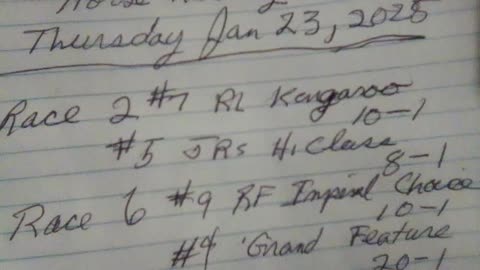 Thursday Jan 23, 2025
Race 2 #7 RL Kangaroo
10-1
#5 JRs Hi Class
8-1
Race 6 #9 RF Imperial Choice
10-1
#4 Grand Feature
20-1